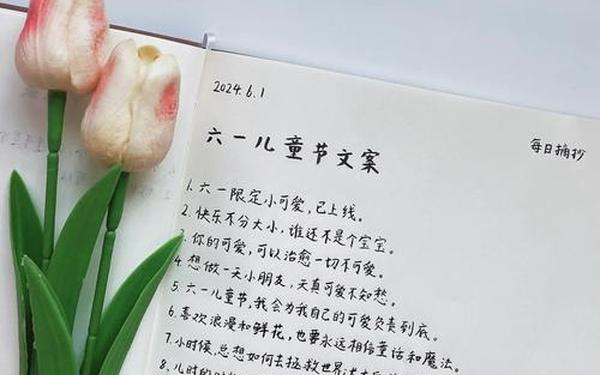 2024.6.1
六一儿童节文案
每日摘抄
1. 六一限定小可爱,已上线。
2. 快乐不分大小,谁还不是个宝宝。
3. 你的可爱,可以治愈一切不可爱。
4. 想做一天小朋友,天真可爱不知愁。
5. 六一儿童节,我会为我自己的可爱负责到底。
6. 喜欢浪漫和鲜花,也要永远相信童话和魔法。
7. 小时候,总想如何去拯救世界
8. 儿时的